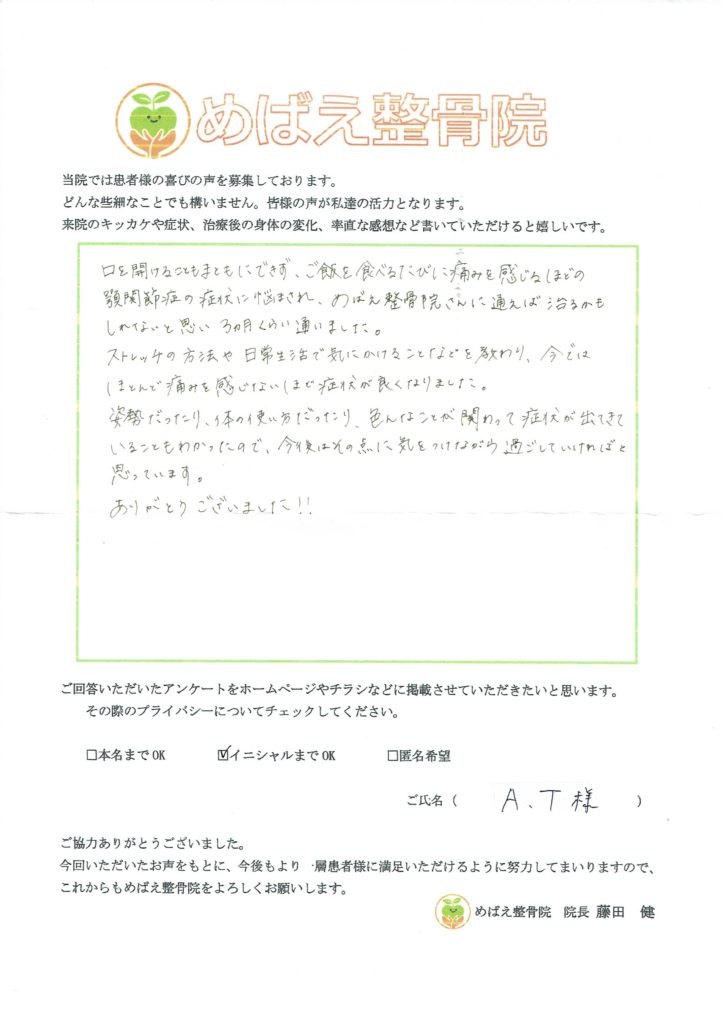 めばえ整骨院
当院では患者様の喜びの声を募集しております。
どんな些細なことでも構いません。皆様の声が私達の活力となります。
来院のキッカケや症状、治療後の身体の変化、率直な感想など書いていただけると嬉しいです。
口を開けることもまともにできず、ご飯を食べるたびに痛みを感じるほどの
顎関節症の症状に悩まされ、めばえ整骨院さんに通えば治るかも
しれないと思い3ヵ月くらい通いました。
ストレッチの方法や日常生活で気にかけることなどを教わり、今では
ほとんど痛みを感じないほど症状が良くなりました。
姿勢だったり、体の使い方だったり、色んなことが関わって症状が出てきて
いることもわかったので、今後はその点に気をつけながら過ごしていければと
思っています。
ありがとうございました!!
ご回答いただいたアンケートをホームページやチラシなどに掲載させていただきたいと思います。
その際のプライバシーについてチェックしてください。
□本名までOK ☑イニシャルまでOK □匿名希望
ご氏名( A.T様 )
ご協力ありがとうございました。
今回いただいたお声をもとに、今後もより一層患者様に満足いただけるように努力してまいりますので、
これからもめばえ整骨院をよろしくお願いします。
めばえ整骨院 院長 藤田 健